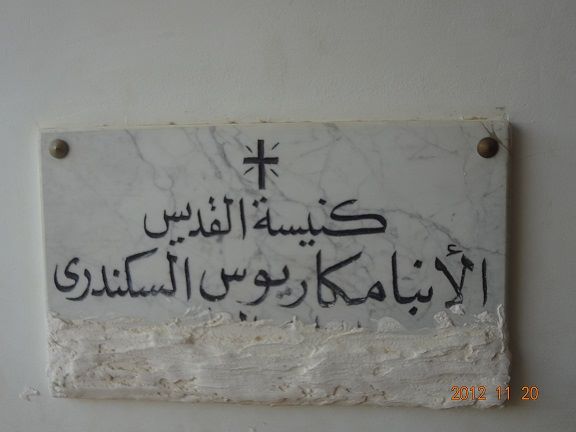 كنيسة القديس
الأنبا مكاريوس السكندرى
2012 11 20